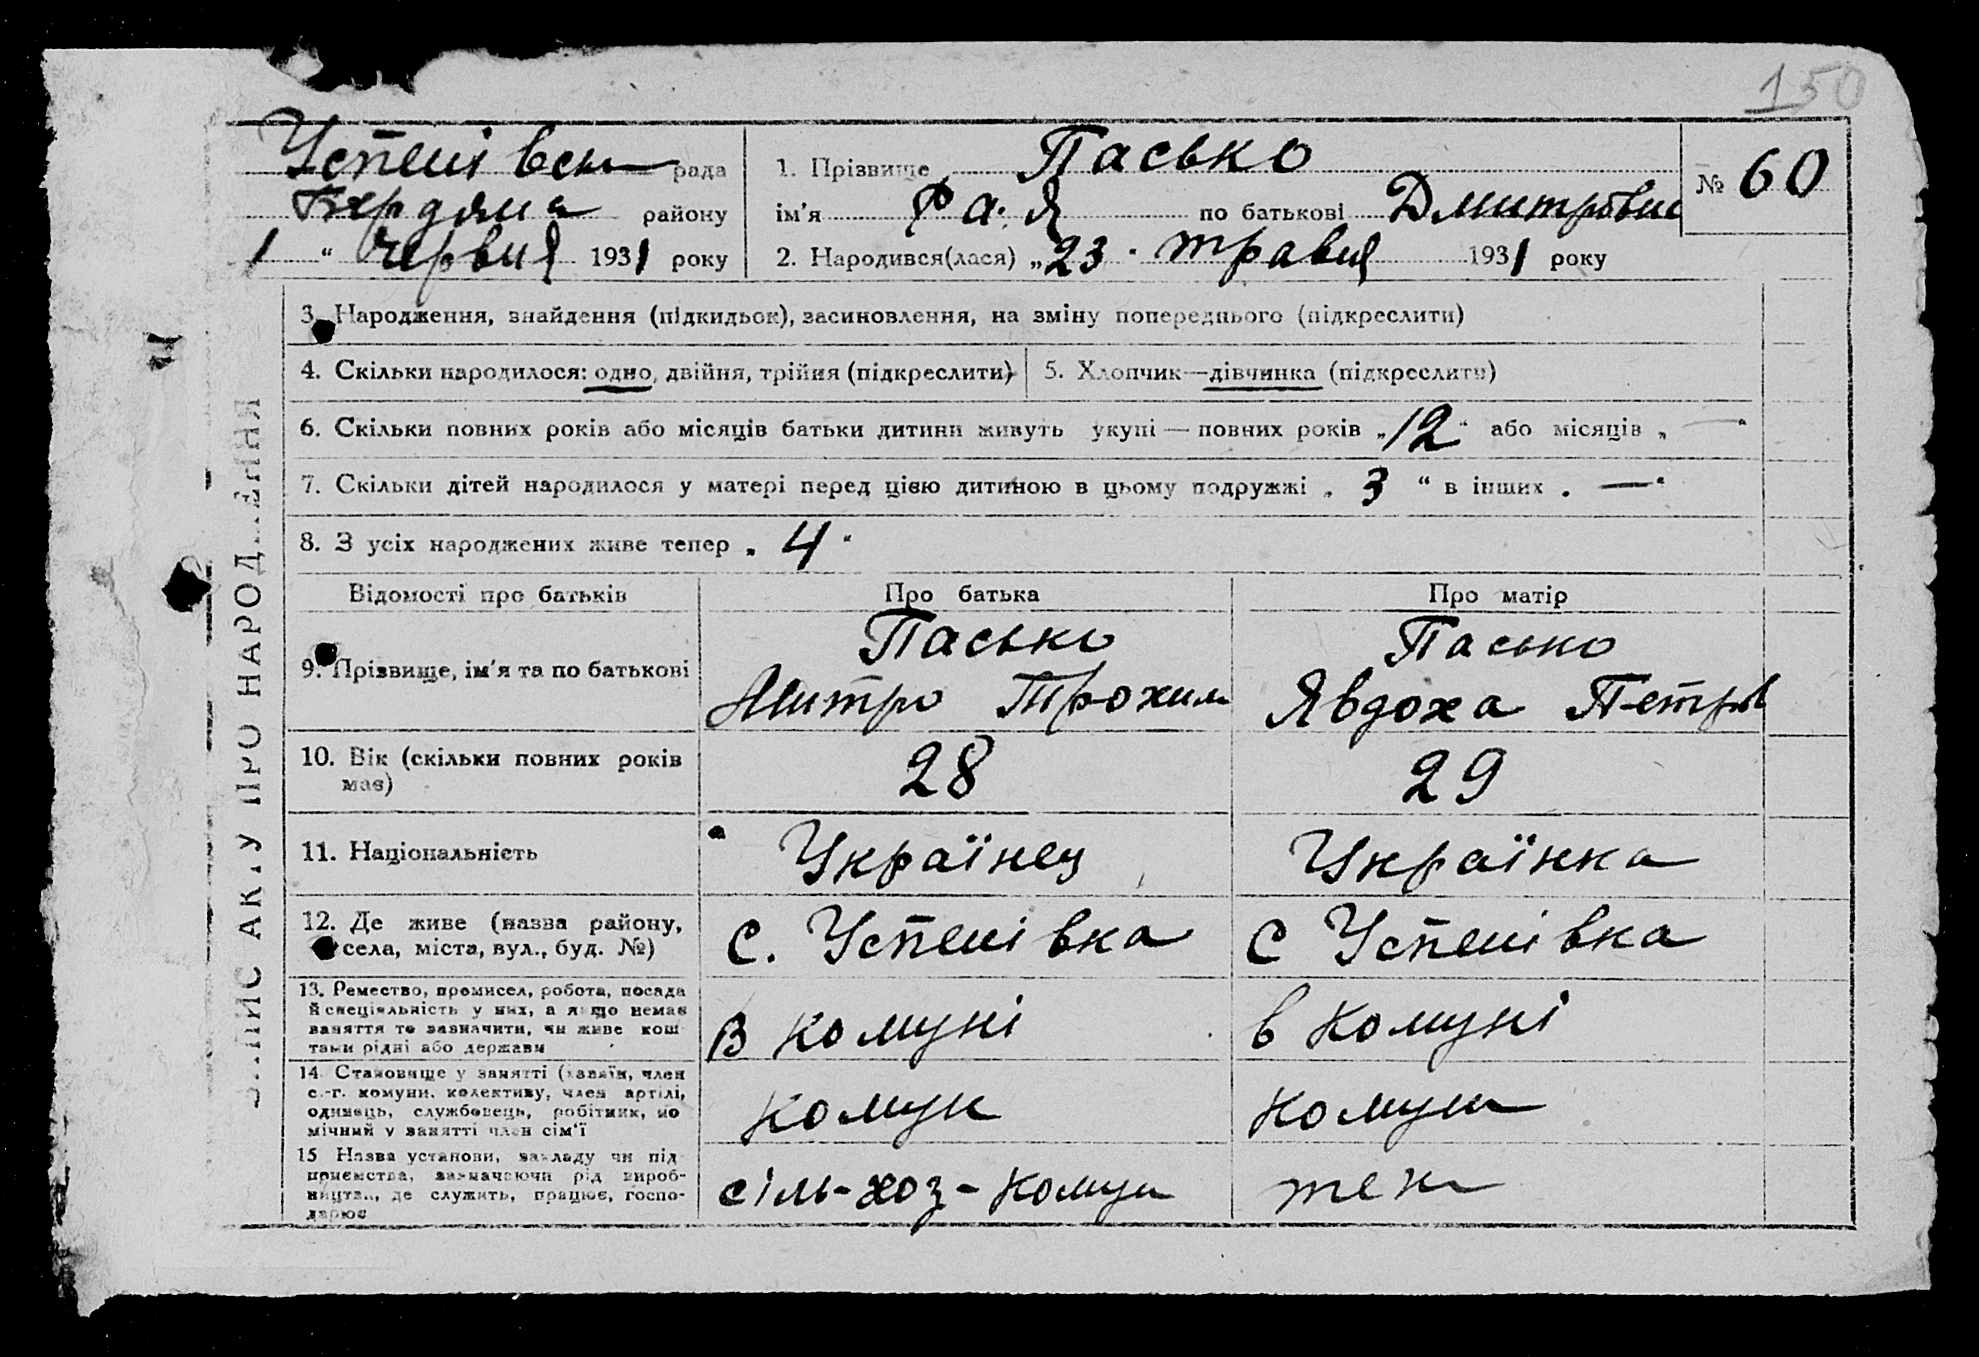 150
Успенівськ рада
Бердянс району
1 " червня 1931 року
1. Прізвище Пасько
ім'я Рая по батькові Дмитрівна
2. Народився(лася) „23" травня 1931 року
№ 60
ЗАПИС АКТУ ПРО НАРОДЖЕННЯ
3. Народження, знайдення (підкидьок), засиновлення, на зміну попереднього (підкреслити)
4. Скільки народилося: одно, двійня, трійня (підкреслити)
5. Хлопчик—дівчинка (підкреслити)
6. Скільки повних років або місяців батьки дитини живуть укупі — повних років „12" або місяців „—"
7. Скільки дітей народилося у матері перед цією дитиною в цьому подружжі „3" в інших „—"
8. З усіх народжених живе тепер „4"
Відомості про батьків Про батька Про матір
9. Прізвище, ім'я та по батькові
Пасько
Дмитро Трохим
Пасько
Явдоха Петрів
10. Вік (скільки повних років
має)
28
29
11. Національність
Українец
Українка
12. Де живе (назва району,
села, міста, вул., буд. №)
с. Успенівка
с Успенівка
13. Ремество, промисел, робота, посада
й спеціяльність у них, а якщо немає
заняття то зазначити, чи живе кош
тами рідні або держави
в комуні
в комуні
14. Становище у занятті (хазяїн, член
с.-г. комуни, колективу, член артілі,
одинець, службовець, робітник, по
мічний у занятті член сім'ї
комун
комун
15 Назва установи, закладу чи під
приємства, зазначаючи рід вироб-
ництва, де служить, працює, госпо-
дарює
сіль-хоз-комун
теж